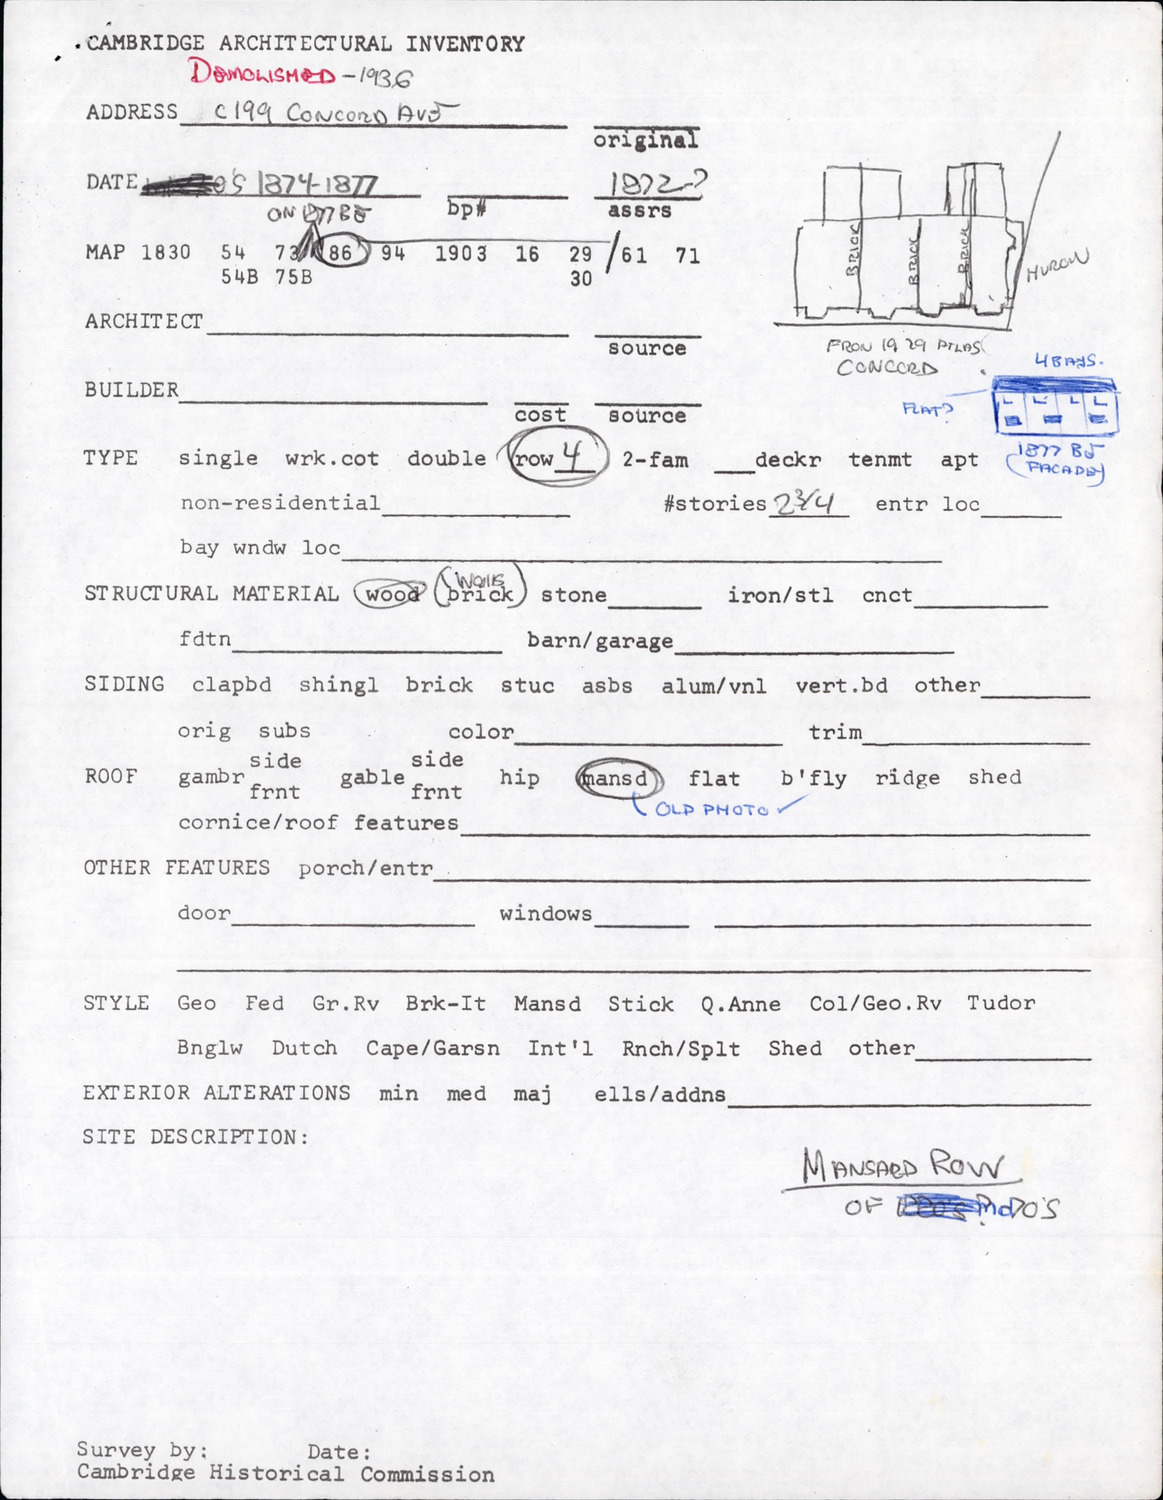 CAMBRIDGE ARCHITECTURAL INVENTORY
DEMOLISHED - 1936
ADDRESS C 199 CONCORD AVE
original
DATE 0'S 1874-1877 1872-?
ON 1877 BE bp# assrs
MAP 1830 54 73 86 94 1903 16 29 / 61 71
54B 75B 30
BRICK BRICK BRICK
HURON
ARCHITECT
source
FROM 1929 ATLAS
CONCORD
4 BAYS.
BUILDER
cost source
FLAT?
1877 BE
(FACADE)
TYPE single wrk.cot double row 4 2-fam ___deckr tenmt apt
non-residential #stories 2 3/4 entr loc
bay wndw loc
WALLS
STRUCTURAL MATERIAL wood brick stone iron/stl cnct
fdtn barn/garage
SIDING clapbd shingl brick stuc asbs alum/vnl vert.bd other
orig subs color trim
side side
ROOF gambr gable hip mansd flat b'fly ridge shed
frnt frnt
OLD PHOTO ✓
cornice/roof features
OTHER FEATURES porch/entr
door windows
STYLE Geo Fed Gr.Rv Brk-It Mansd Stick Q.Anne Col/Geo.Rv Tudor
Bnglw Dutch Cape/Garsn Int'l Rnch/Splt Shed other
EXTERIOR ALTERATIONS min med maj ells/addns
SITE DESCRIPTION:
MANSARD ROW
OF Md70'S
Survey by: Date:
Cambridge Historical Commission